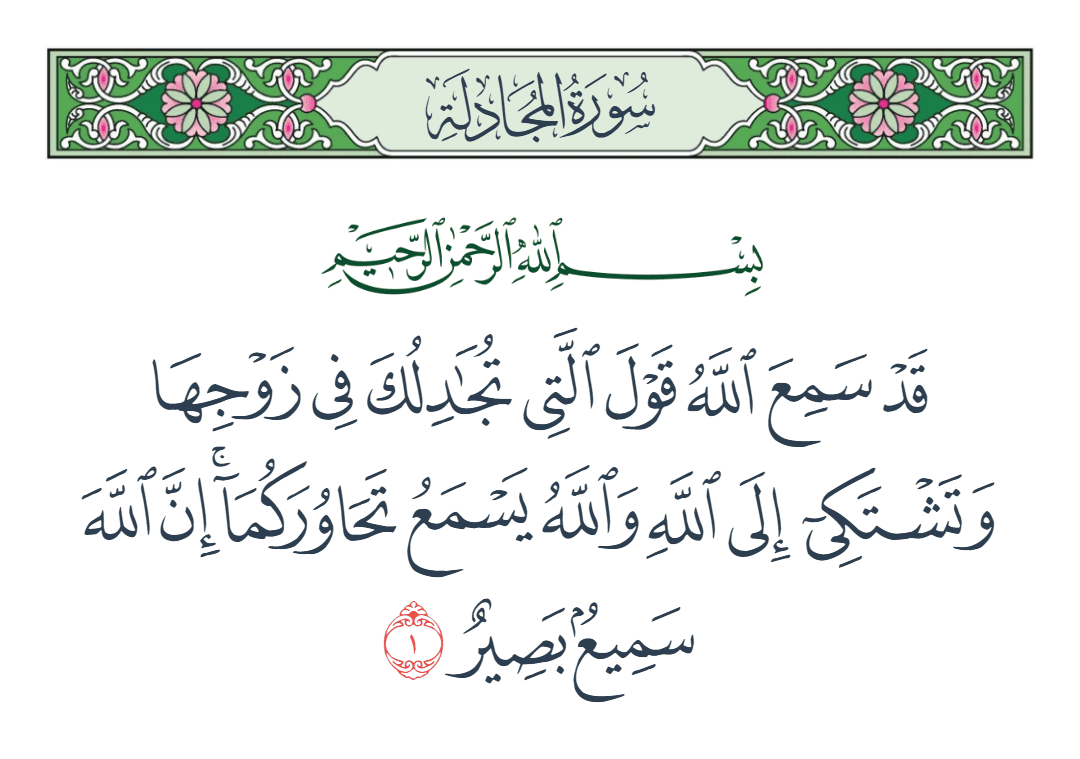 سُورَةُ المُجَادلَةِ
بِسْمِ ٱللَّهِ ٱلرَّحْمَٰنِ ٱلرَّحِيمِ
قَدْ سَمِعَ ٱللَّهُ قَوْلَ ٱلَّتِى تُجَٰدِلُكَ فِى زَوْجِهَا
وَتَشْتَكِىٓ إِلَى ٱللَّهِ وَٱللَّهُ يَسْمَعُ تَحَاوُرَكُمَآ ۚ إِنَّ ٱللَّهَ
سَمِيعٌۢ بَصِيرٌ ١